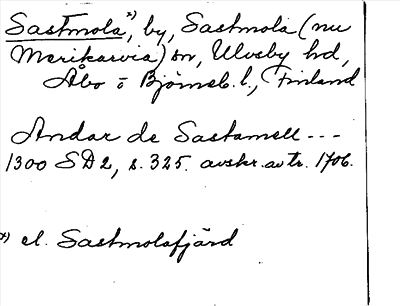 Sastmola x), by, Sastmola (nu
Merikarvia) sn, Ulvsby hd,
Åbo o Björneb. l., Finland
Andar de Sastamell ---
1300 SD2, s. 325. avskr. av tr. 1706.
x) el. Sastmolafjärd